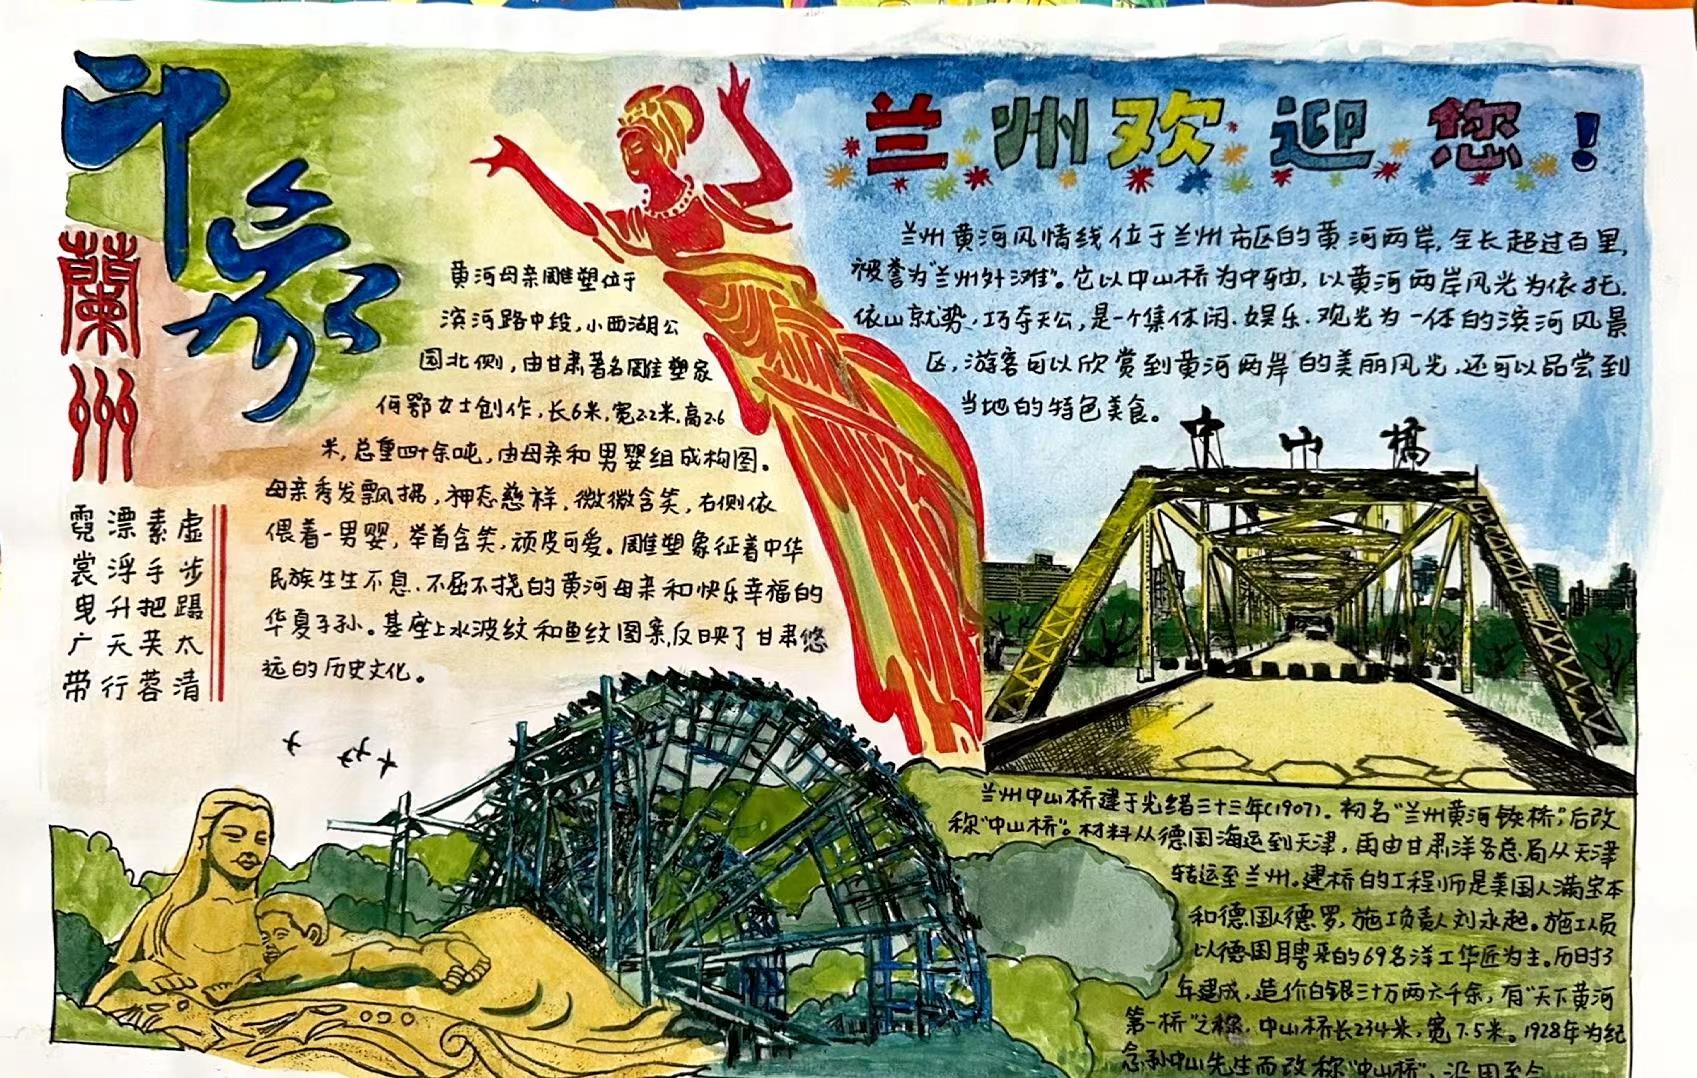 印象
蘭州
虚步蹑太清
素手把芙蓉
漂浮升天行
霓裳曳广带
黄河母亲雕塑位于
滨河路中段,小西湖公
园北侧,由甘肃著名雕塑家
何鄂女士创作,长6米,宽2.2米,高2.6
米,总重四十余吨,由母亲和男婴组成构图。
母亲秀发飘拂,神态慈祥,微微含笑,右侧依
偎着一男婴,举首含笑,顽皮可爱。雕塑象征着中华
民族生生不息、不屈不挠的黄河母亲和快乐幸福的
华夏子孙。基座上水波纹和鱼纹图案,反映了甘肃悠
远的历史文化。
兰州欢迎您!
兰州黄河风情线位于兰州市区的黄河两岸,全长超过百里,
被誉为“兰州外滩”。它以中山桥为中轴,以黄河两岸风光为依托,
依山就势,巧夺天公,是一个集休闲、娱乐、观光为一体的滨河风景
区,游客可以欣赏到黄河两岸的美丽风光,还可以品尝到
当地的特色美食。
中山橋
兰州中山桥建于光绪三十三年(1907)。初名“兰州黄河铁桥”,后改
称“中山桥”。材料从德国海运到天津,再由甘肃洋务总局从天津
转运至兰州。建桥的工程师是美国人满宝本
和德国人德罗,施工负责人刘永起。施工人员
以德国聘来的69名洋工华匠为主。历时3
年建成,造价白银三十万两六千余,有“天下黄河
第一桥”之称。中山桥长234米,宽7.5米。1928年为纪
念孙中山先生而改称“中山桥”,沿用至今